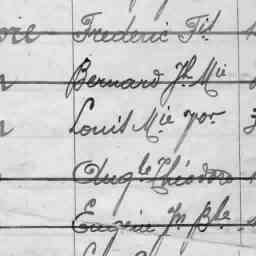 Frederic Fis
Bernard Jh Mie
Louis Mie
Augte Théodore
Eugène Jn Bte